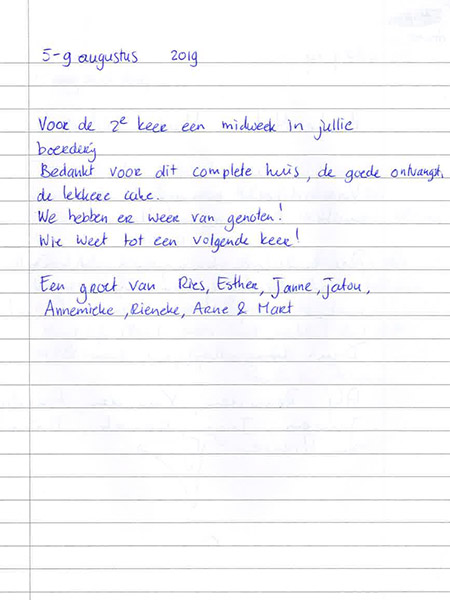 5-9 augustus 2019
Voor de 2e keer een midweek in jullie
boerderij
Bedankt voor dit complete huis, de goede ontvangst,
de lekkere cake.
We hebben er weer van genoten!
Wie weet tot een volgende keer!
Een groet van Ries, Esther, Janne, Jatou,
Annemieke, Rieneke, Arne & Mart